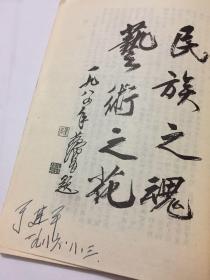 民族之魂
藝術之花
一九八四年
題
一九八六.八.三.